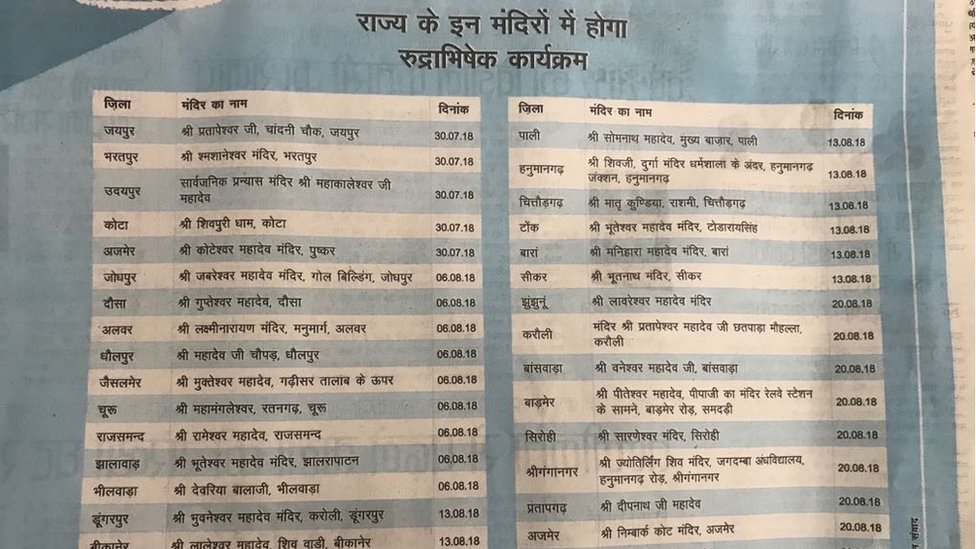 राज्य के इन मंदिरों में होगा
रुद्राभिषेक कार्यक्रम
ज़िला मंदिर का नाम दिनांक
जयपुर श्री प्रतापेश्वर जी, चांदनी चौक, जयपुर 30.07.18
भरतपुर श्री श्मशानेश्वर मंदिर, भरतपुर 30.07.18
उदयपुर सार्वजनिक प्रन्यास मंदिर श्री महाकालेश्वर जी
महादेव 30.07.18
कोटा श्री शिवपुरी धाम, कोटा 30.07.18
अजमेर श्री कोटेश्वर महादेव मंदिर, पुष्कर 30.07.18
जोधपुर श्री जबरेश्वर महादेव मंदिर, गोल बिल्डिंग, जोधपुर 06.08.18
दौसा श्री गुप्तेश्वर महादेव, दौसा 06.08.18
अलवर श्री लक्ष्मीनारायण मंदिर, मनुमार्ग, अलवर 06.08.18
धौलपुर श्री महादेव जी चौपड़, धौलपुर 06.08.18
जैसलमेर श्री मुक्तेश्वर महादेव, गढ़ीसर तालाब के ऊपर 06.08.18
चूरू श्री महामंगलेश्वर, रतनगढ़, चूरू 06.08.18
राजसमन्द श्री रामेश्वर महादेव, राजसमन्द 06.08.18
झालावाड़ श्री भूतेश्वर महादेव मंदिर, झालरापाटन 06.08.18
भीलवाड़ा श्री देवरिया बालाजी, भीलवाड़ा 06.08.18
डूंगरपुर श्री भुवनेश्वर महादेव मंदिर, करोली, डूंगरपुर 13.08.18
बीकानेर श्री लालेश्वर महादेव, शिव वाडी, बीकानेर 13.08.18
ज़िला मंदिर का नाम दिनांक
पाली श्री सोमनाथ महादेव, मुख्य बाज़ार, पाली 13.08.18
हनुमानगढ़ श्री शिवजी, दुर्गा मंदिर धर्मशाला के अंदर, हनुमानगढ़
जंक्शन, हनुमानगढ़ 13.08.18
चित्तौड़गढ़ श्री मातृ कुण्डिया, राशमी, चित्तौड़गढ़ 13.08.18
टोंक श्री भूतेश्वर महादेव मंदिर, टोडारायसिंह 13.08.18
बारां श्री मनिहारा महादेव मंदिर, बारां 13.08.18
सीकर श्री भूतनाथ मंदिर, सीकर 13.08.18
झुंझुनूं श्री लावरेश्वर महादेव मंदिर 20.08.18
करौली मंदिर श्री प्रतापेश्वर महादेव जी छतपाड़ा मौहल्ला,
करौली 20.08.18
बांसवाड़ा श्री वनेश्वर महादेव जी, बांसवाड़ा 20.08.18
बाड़मेर श्री पीतेश्वर महादेव, पीपाजी का मंदिर रेलवे स्टेशन
के सामने, बाड़मेर रोड़, समदड़ी 20.08.18
सिरोही श्री सारणेश्वर मंदिर, सिरोही 20.08.18
श्रीगंगानगर श्री ज्योतिर्लिंग शिव मंदिर, जगदम्बा अंधविद्यालय,
हनुमानगढ़ रोड़, श्रीगंगानगर 20.08.18
प्रतापगढ़ श्री दीपनाथ जी महादेव 20.08.18
अजमेर श्री निम्बार्क कोट मंदिर, अजमेर 20.08.18
संवाद